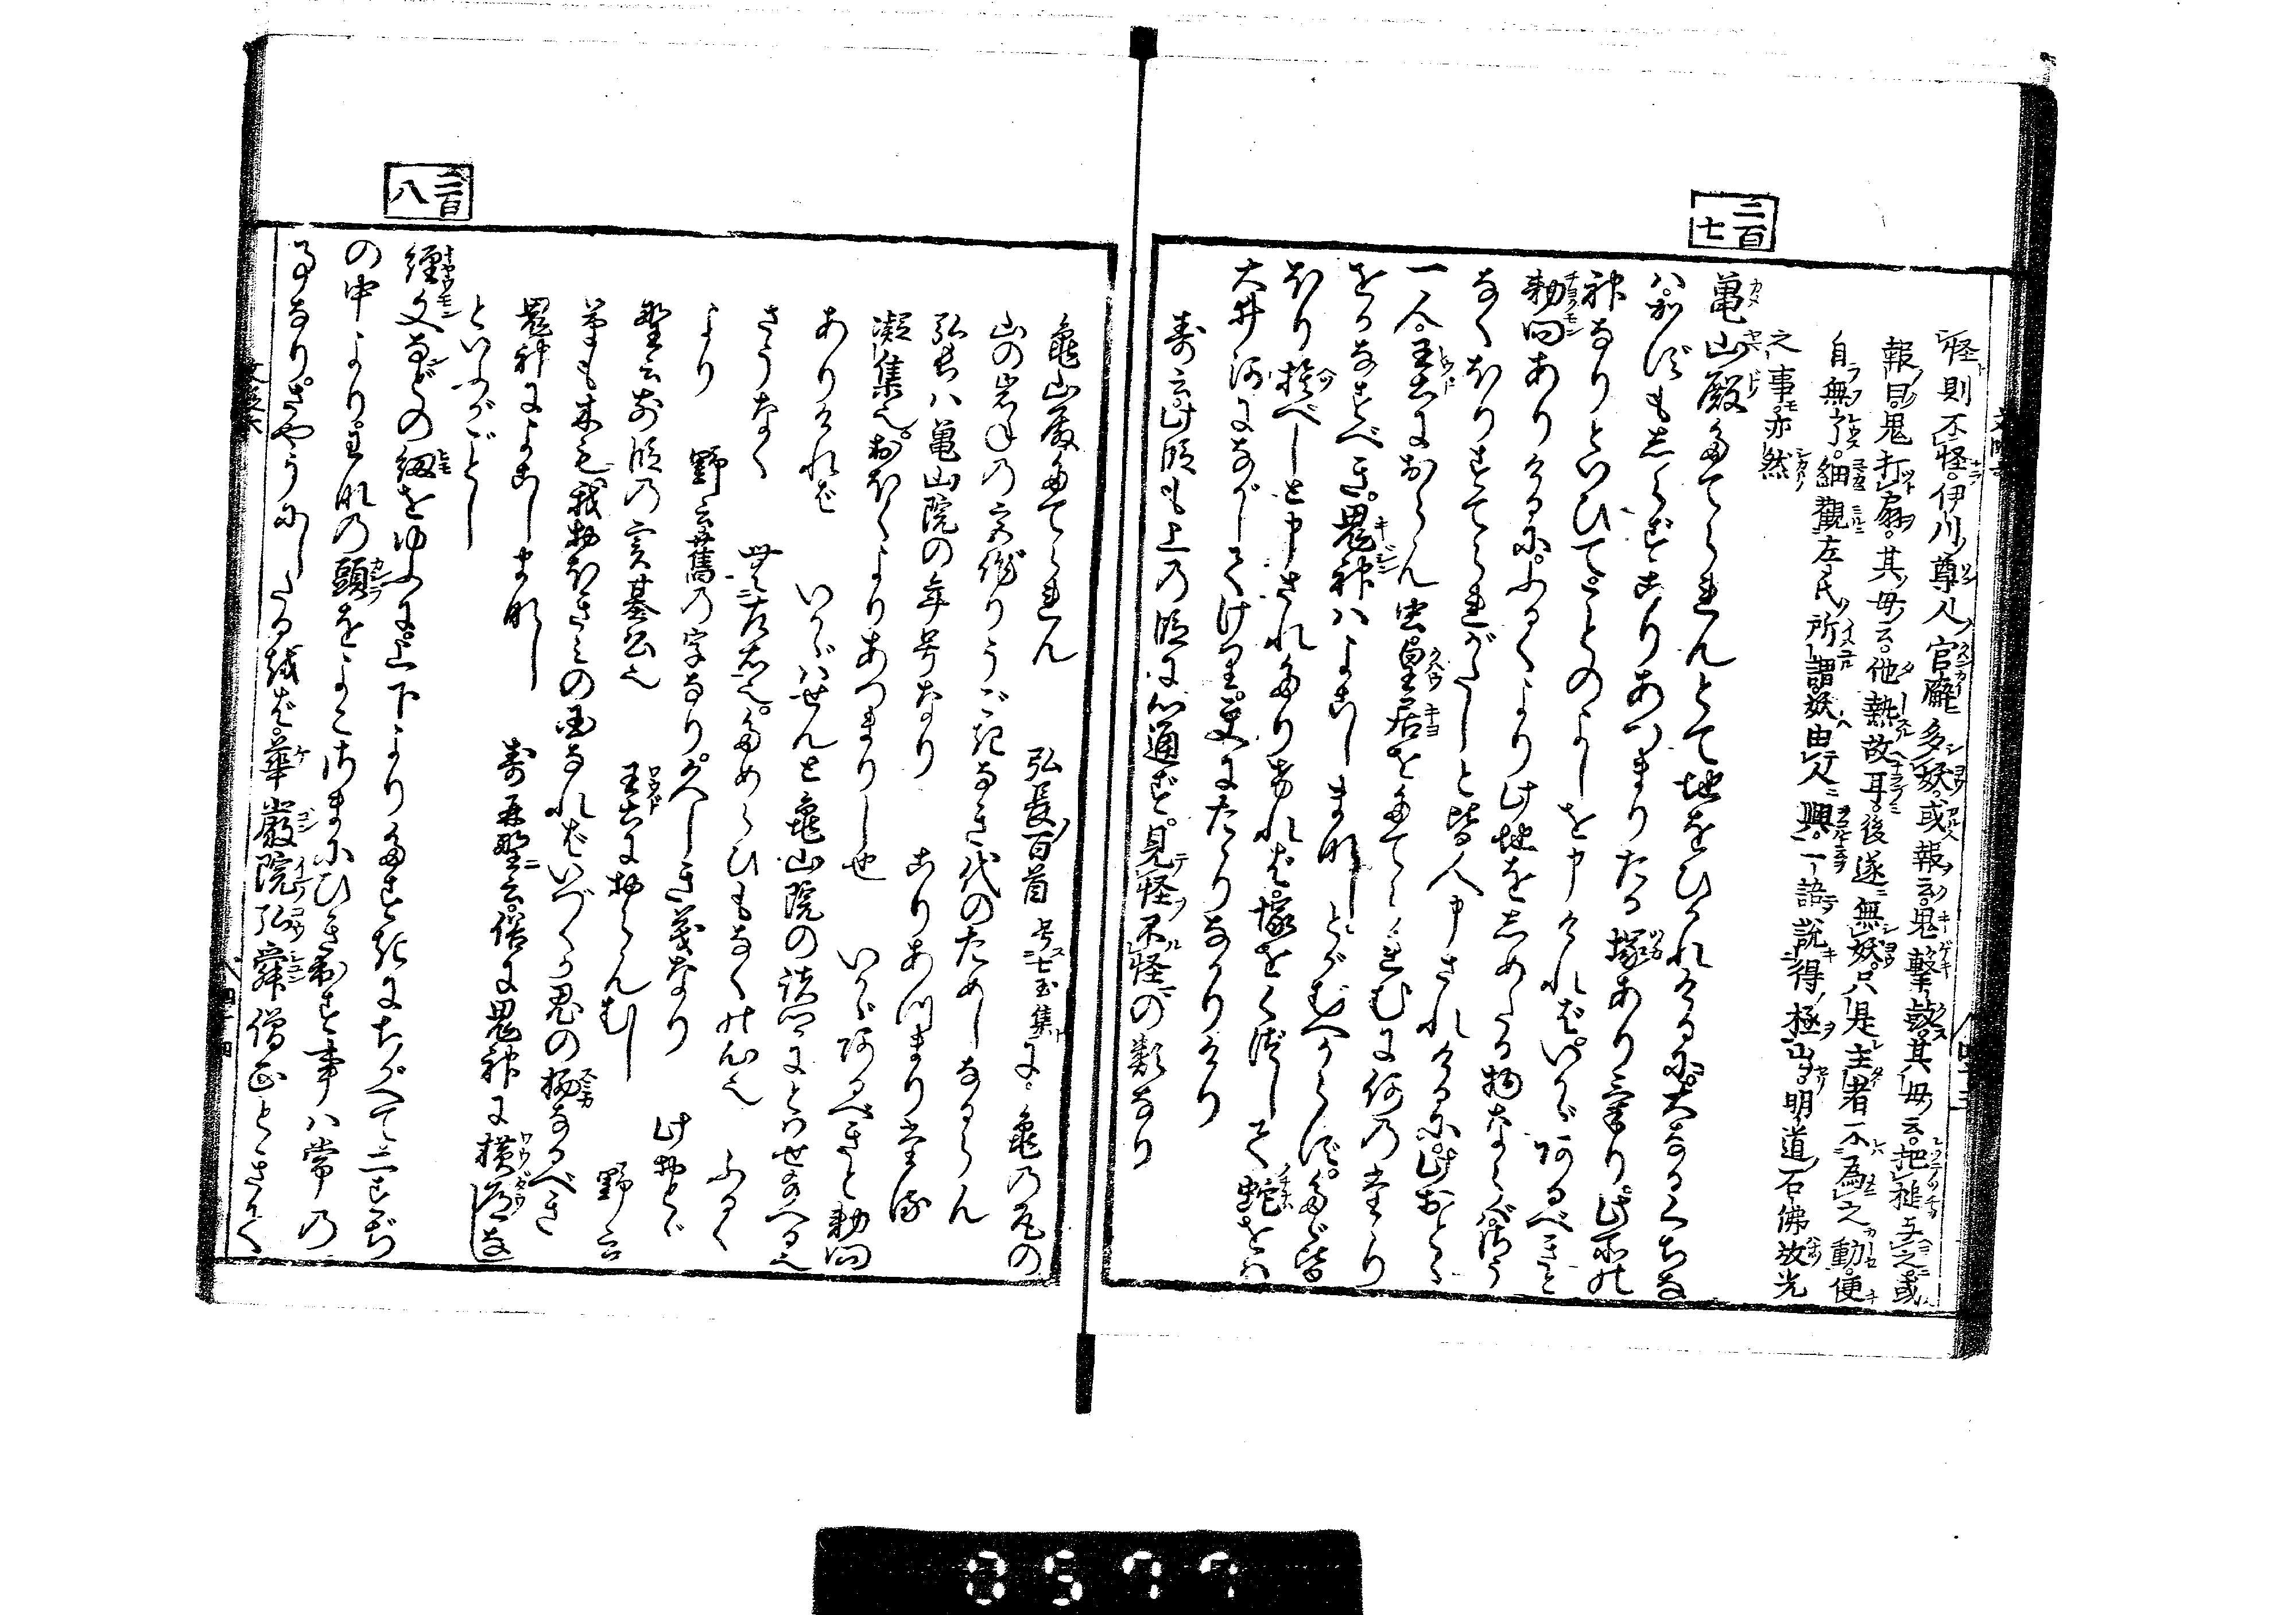 二百七
怪則不怪。伊川尊人官廨多妖。或報云。鬼撃鼓。其母云。把槌与之。或
報曰。鬼打扇。其母云。他熱故耳。後遂無妖。只是主者不為之動。便
自無了。細観左氏所謂妖由人興。一語説得極出。明道石佛放光
之事。亦然
亀山殿たてられんとて地をひかれけるに。大なるくちな
ハ。かずもしらずこりあつまりたる塚ありけり。此所の
神なりといひて。ことのよしを申ければ。いかゞあるべきと
勅問ありけるに。ふるくより此地をしめたる物ならば。さう
なくほりすてられがたしと皆人申されけるに。此おとゞ
一人。王土におらん虫。皇居をたてられむに何のたゝり
をかなすべき。鬼神ハよこしまなし。とがむべからず。たゞ皆
ほり捨べしと申されたりければ。塚をくづして蛇をハ
大井河にながしてけり。更にたゝりなかりけり
寿云此段も上の段に心通ず。見怪不怪の類なり
亀山殿たてられん　弘長百首 号七玉集に。亀の尾の
山の岩ねの宮作りうごきなき代のためしなるらん
弘長ハ亀山院の年号なり　こりあつまりたる
凝集也。おほくよりあつまりし也　いかゞあるべきと勅問
ありければ　いかゞハせんと亀山院の諸卿にとハせ給へる也
さうなく　無左右也。ためらひもなくの心也　ふるく
より　野云舊の字なり。久しき義なり　此おとゞ
盤云前段の実基公也　王土に おらんむし　野云
草も木も我おほきみの国なればいづくか鬼の栖なるべき
鬼神によこしまなし　寿再盤云。俗に鬼神に横道な
といふがごとし
二百八
経文などの紐をゆふに。上下よりたすきにちがへて二すぢ
の中よりわなの頭をよこさまにひき出す事ハ常の
事なり。さやうにしたるをば。華厳院弘舜僧正とき